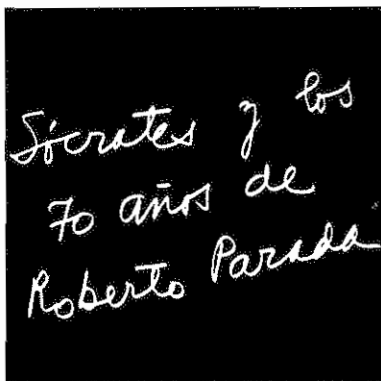 Sócrates y los
70 años de
Roberto Parada